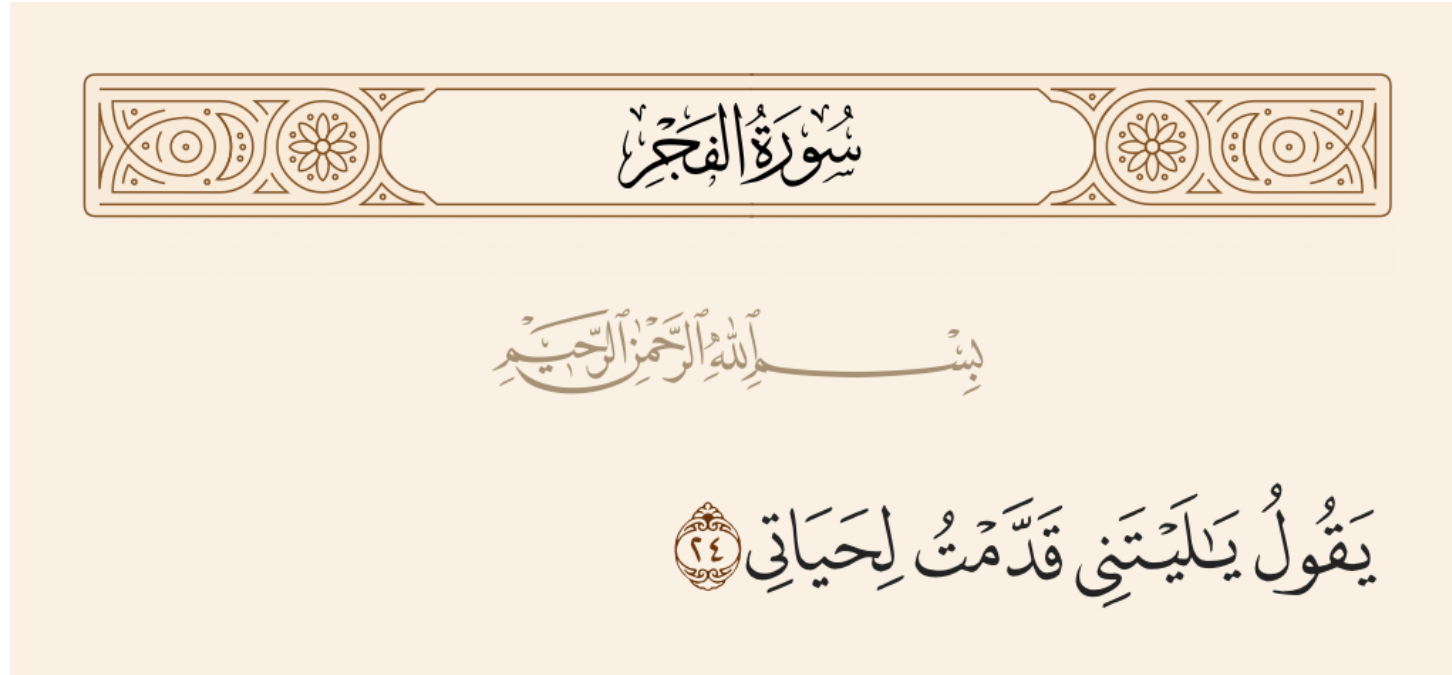 سُورَةُ الفَجْرِ
بِسْمِ ٱللَّهِ ٱلرَّحْمَٰنِ ٱلرَّحِيمِ
يَقُولُ يَٰلَيْتَنِى قَدَّمْتُ لِحَيَاتِى ٢٤